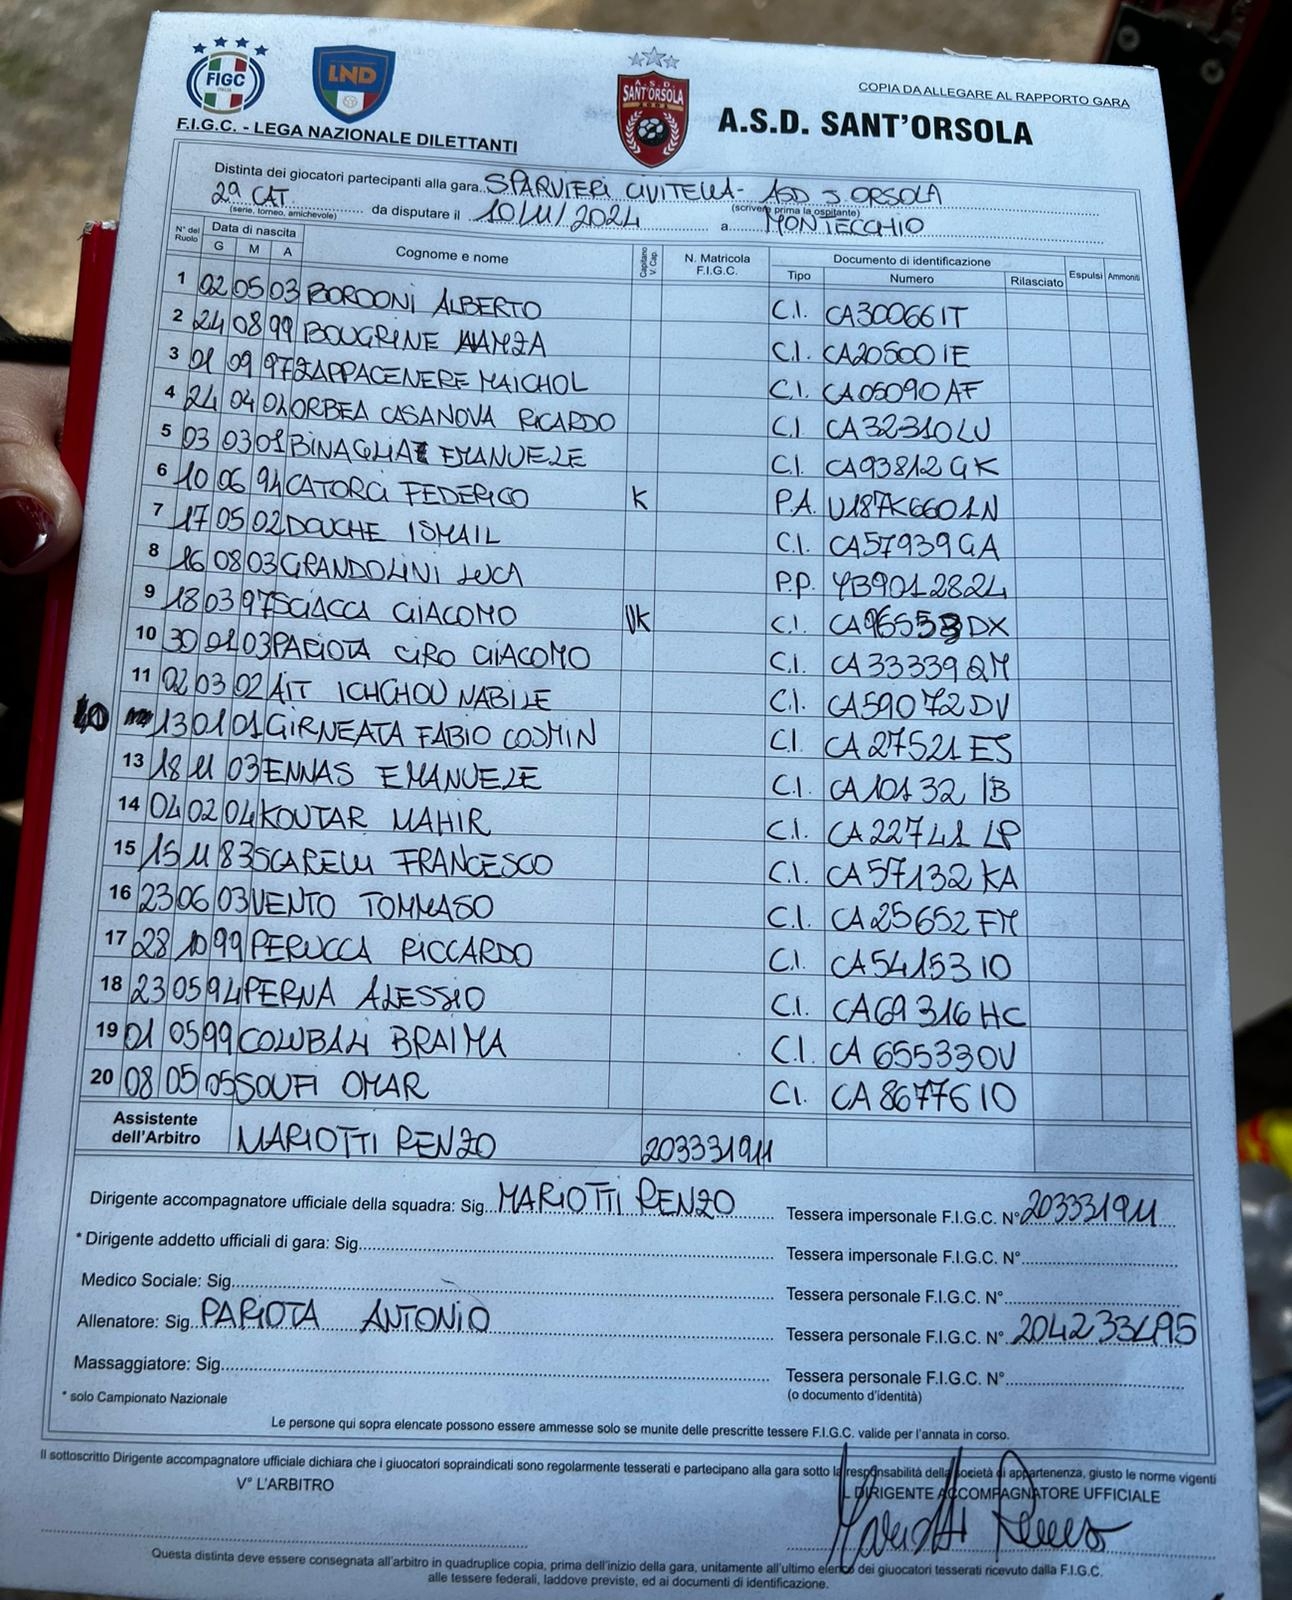 FIGC
ITALIA
LND
A.S.D.
SANT'ORSOLA
COPIA DA ALLEGARE AL RAPPORTO GARA
F.I.G.C. - LEGA NAZIONALE DILETTANTI
A.S.D. SANT'ORSOLA
Distinta dei giocatori partecipanti alla gara SPARVIERI CIVITELLA - ASD S. ORSOLA
(scrivere prima la ospitante)
2ª CAT. da disputare il 10/11/2024 a MONTECCHIO
(serie, torneo, amichevole)
N° del Ruolo Data di nascita G M A Cognome e nome Capitano V. Cap. N. Matricola F.I.G.C. Documento di identificazione Tipo Numero Rilasciato Espulsi Ammoniti
1 02 05 03 BORDONI ALBERTO C.I. CA30066IT
2 24 08 99 BOUGRINE HAMZA C.I. CA20500IE
3 01 09 97 ZAPPACENERE MAICHOL C.I. CA05090AF
4 24 04 01 ORBEA CASANOVA RICARDO C.I. CA32310LU
5 03 03 01 BINAGLIA EMANUELE C.I. CA93812GK
6 10 06 94 CATORCI FEDERICO K P.A. U187K6601N
7 17 05 02 DOUCHE ISMAIL C.I. CA57939GA
8 16 08 03 GRANDOLINI LUCA P.P. YB9012824
9 18 03 97 SCIACCA GIACOMO VK C.I. DX
10 30 01 03 PARIOTA CIRO GIACOMO C.I. CA33339QM
11 02 03 02 AIT ICHCHOU NABILE C.I. CA59072DV
13 01 01 GIRNEATA FABIO COSMIN C.I. CA27521ES
13 18 11 03 ENNAS EMANUELE C.I. CA10132IB
14 04 02 04 KOUTAR MAHIR C.I. CA22741LP
15 15 11 83 SCARELLI FRANCESCO C.I. CA57132KA
16 23 06 03 VENTO TOMMASO C.I. CA25652FM
17 28 10 99 PERUCCA RICCARDO C.I. CA54153IO
18 23 05 94 PERNA ALESSIO C.I. CA69316HC
19 01 05 99 COLUBALI BRAIMA C.I. CA65533OV
20 08 05 05 SOUFI OMAR C.I. CA86776IO
Assistente dell'Arbitro MARIOTTI RENZO 203331911
Dirigente accompagnatore ufficiale della squadra: Sig. MARIOTTI RENZO Tessera impersonale F.I.G.C. N° 203331911
* Dirigente addetto ufficiali di gara: Sig. Tessera impersonale F.I.G.C. N°
Medico Sociale: Sig. Tessera personale F.I.G.C. N°
Allenatore: Sig. PARIOTA ANTONIO Tessera personale F.I.G.C. N°
Massaggiatore: Sig. Tessera personale F.I.G.C. N°
* solo Campionato Nazionale (o documento d'identità)
Le persone qui sopra elencate possono essere ammesse solo se munite delle prescritte tessere F.I.G.C. valide per l'annata in corso.
Il sottoscritto Dirigente accompagnatore ufficiale dichiara che i giuocatori sopraindicati sono regolarmente tesserati e partecipano alla gara sotto la responsabilità della società di appartenenza, giusto le norme vigenti
V° L'ARBITRO IL DIRIGENTE ACCOMPAGNATORE UFFICIALE
Mariotti Renzo
Questa distinta deve essere consegnata all'arbitro in quadruplice copia, prima dell'inizio della gara, unitamente all'ultimo elenco dei giuocatori tesserati ricevuto dalla F.I.G.C.
alle tessere federali, laddove previste, ed ai documenti di identificazione.